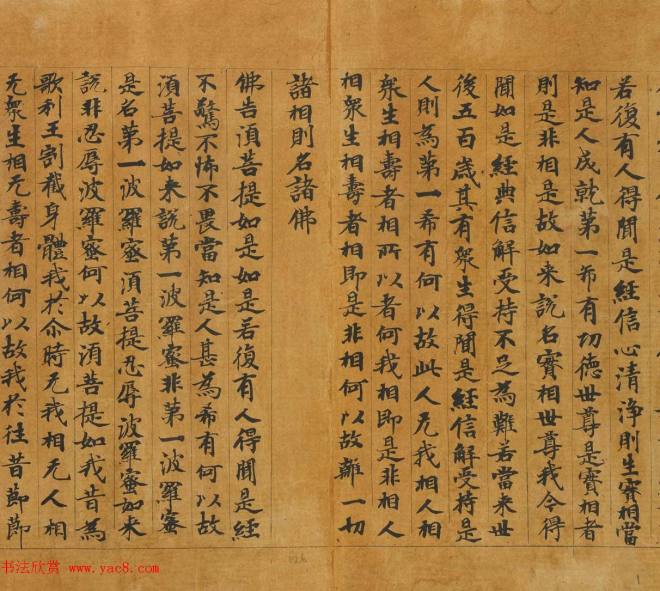 若復有人得聞是經信心清淨則生實相當
知是人成就第一希有功德世尊是實相者
則是非相是故如来說名實相世尊我今得
聞如是經典信解受持不足為難若當来世
後五百歲其有衆生得聞是經信解受持是
人則為第一希有何以故此人无我相人相
衆生相壽者相所以者何我相即是非相人
相衆生相壽者相即是非相何以故離一切
諸相則名諸佛
佛告湏菩提如是如是若復有人得聞是經
不驚不怖不畏當知是人甚為希有何以故
湏菩提如来說第一波羅蜜非第一波羅蜜
是名第一波羅蜜湏菩提忍辱波羅蜜如来
說非忍辱波羅蜜何以故湏菩提如我昔為
歌利王割截身體我於尒時无我相无人相
无衆生相无壽者相何以故我於往昔節節
书法欣赏 www.yac8.com